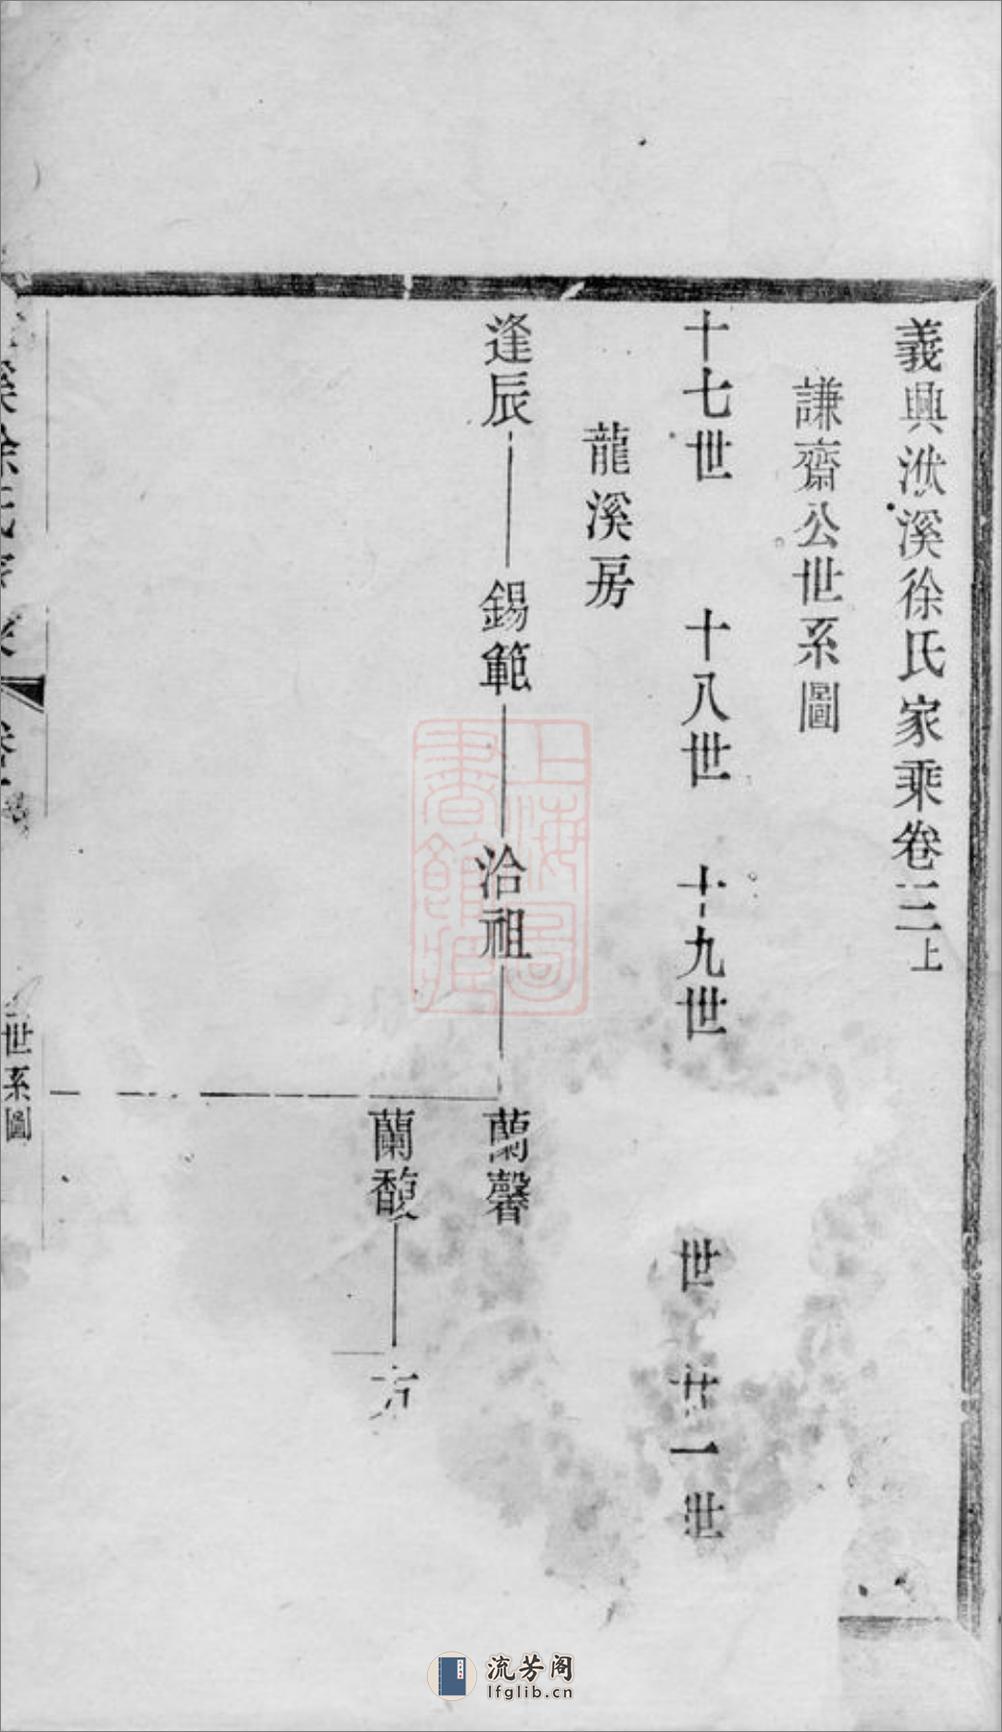 義興洑溪徐氏家乘卷三上
謙齋公世系圖
十七世 十八世 十九世 世 廿一世
龍溪房
逢辰 錫範 洽祖 蘭馨
蘭馥
溪徐氏家乘 卷
世系圖
上海圖
書館藏
流芳阁
lfglib.cn